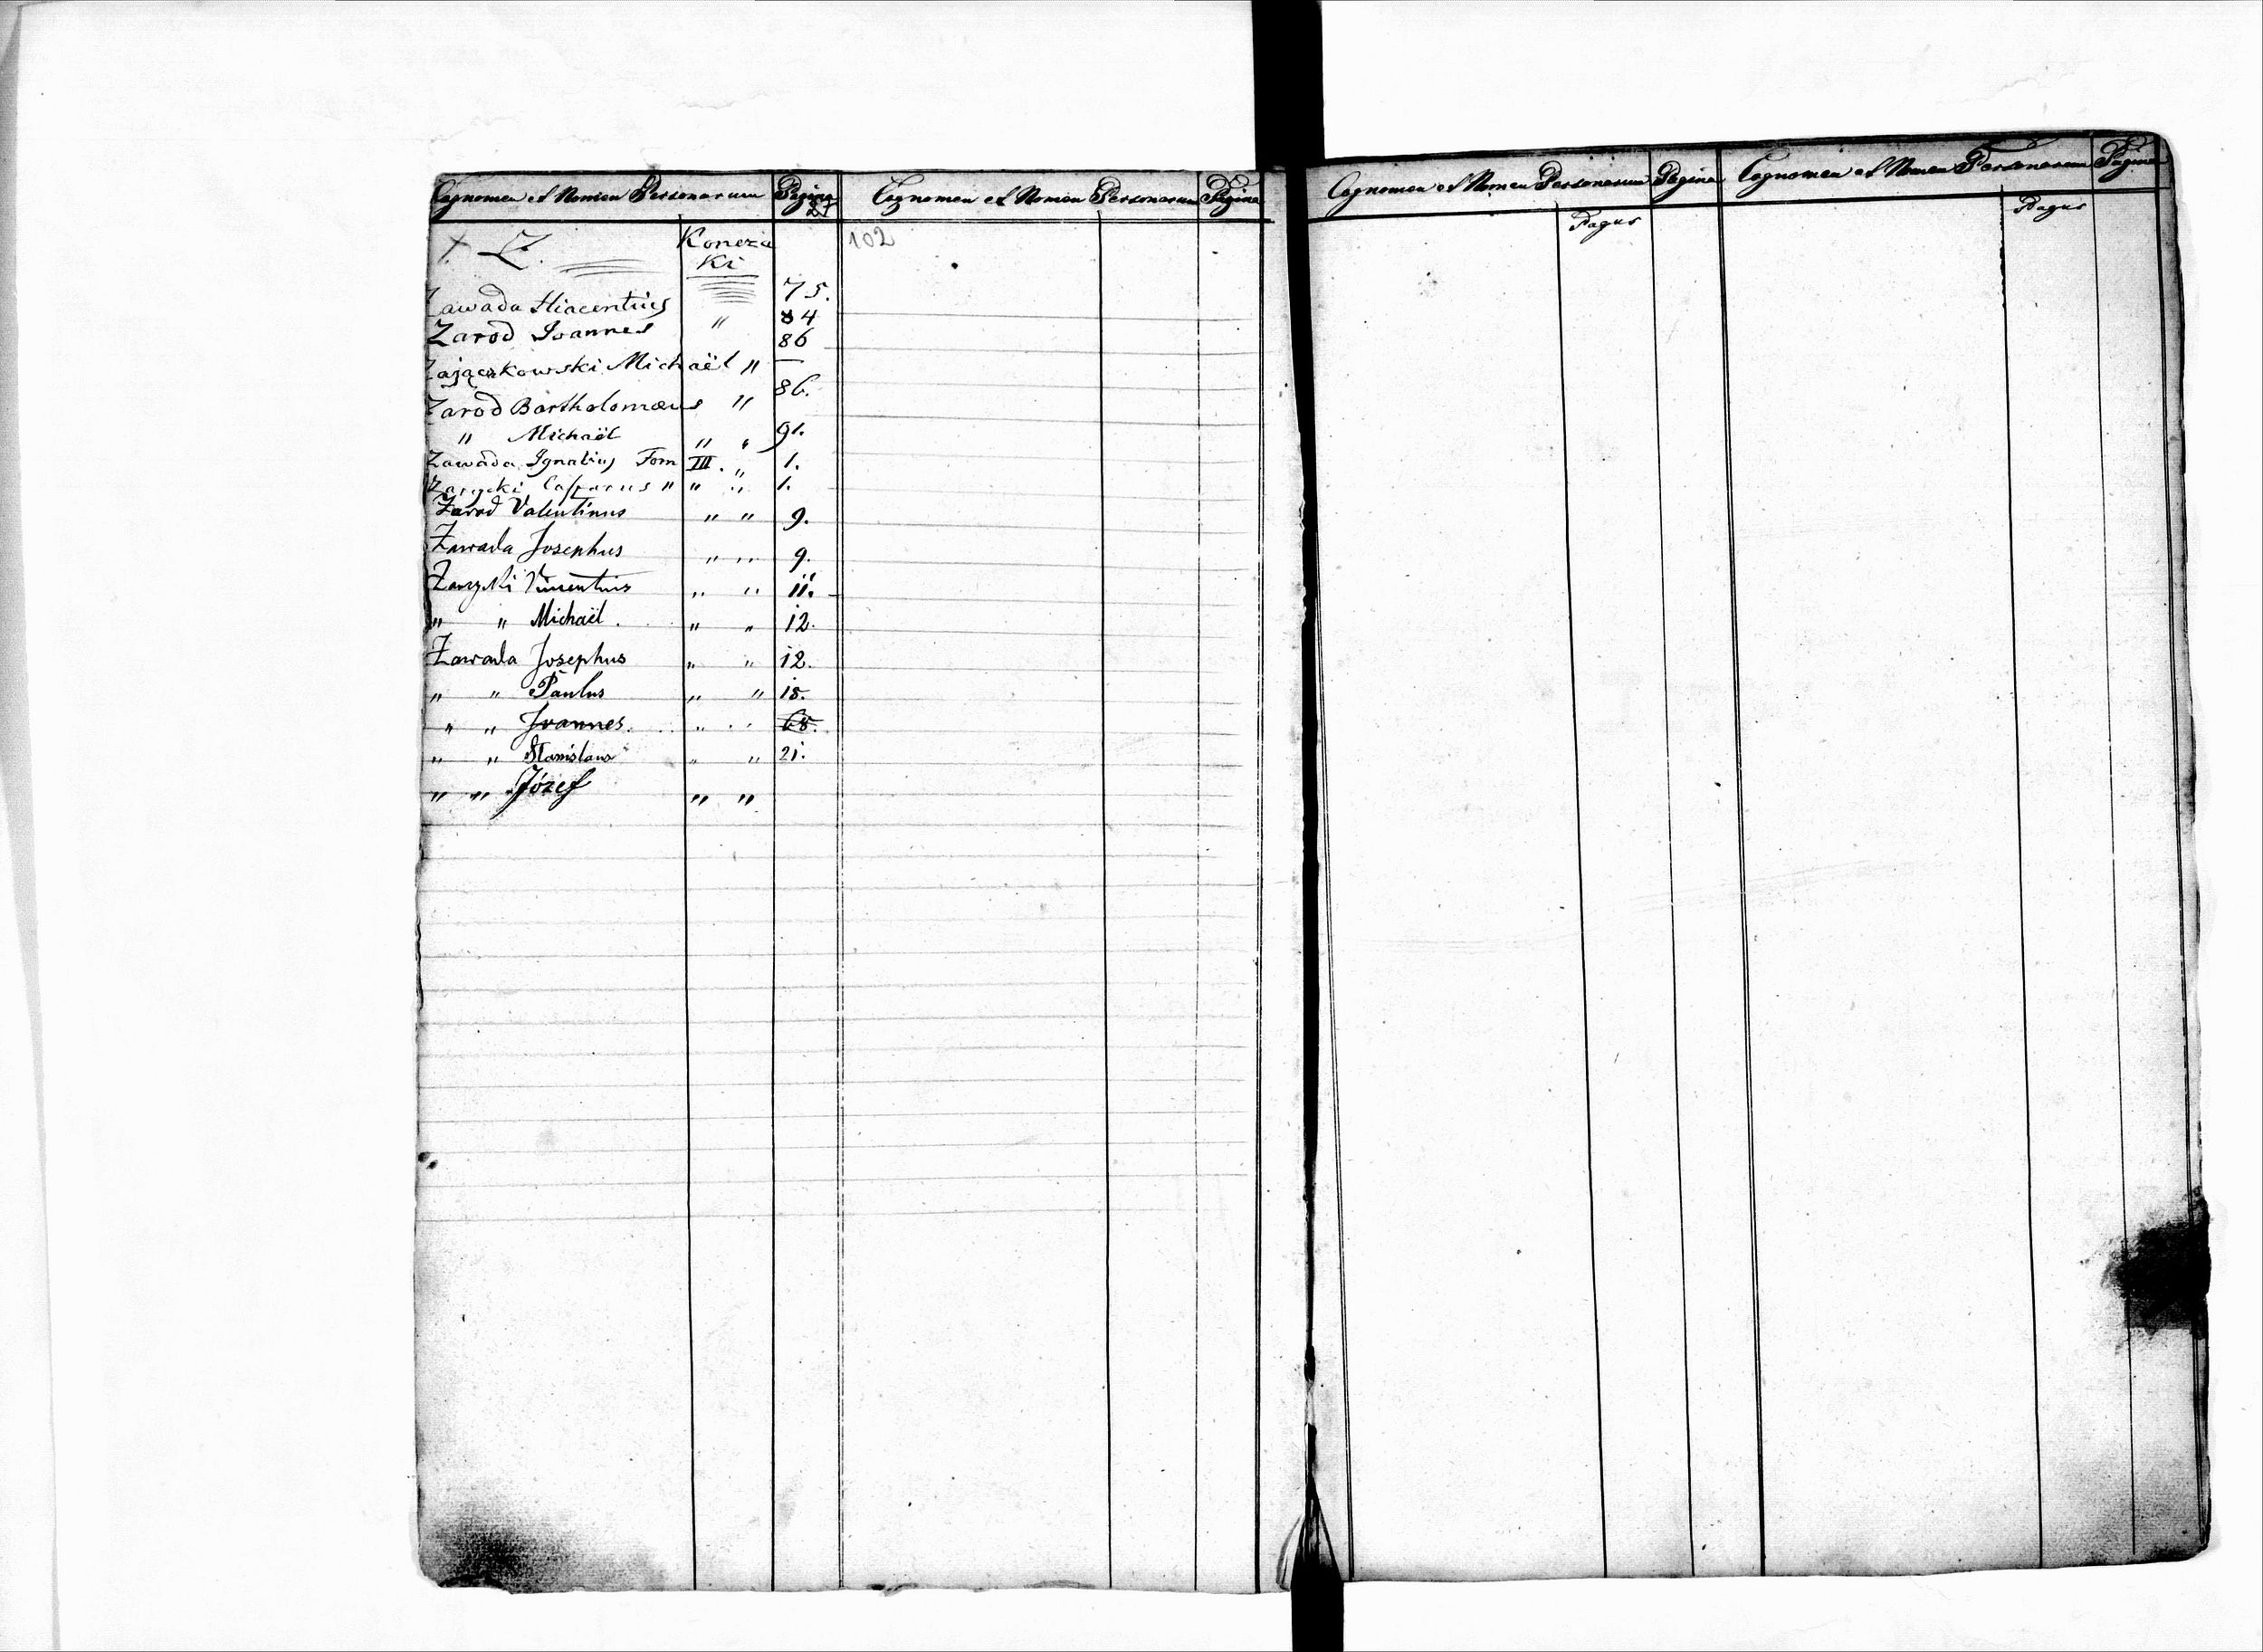 Cognomen et Nomen Personarum Pagina
27
Z. Koneza
ki
Zawada Hiacentius 75.
Zarod Joannes " 84
86
Zajączkowski Michaël " —
Zarod Bartholomæus " 86.
" Michaël " " 91.
Zawada Ignatius Tom III. " 1.
Zarycki Casparus " " " 1.
Zarod Valentinus " " 9.
Zawada Josephus " " 9.
Zarycki Vincentius " " 11.
" " Michaël. " " 12.
Zawada Josephus " " 12.
" " Paulus " " 15.
" " Joannes. " " 65.
" " Stanislaus " " 21.
" " Józef " "
Cognomen et Nomen Personarum Pagina
102
Cognomen et Nomen Personarum Pagina
Pagus
Cognomen et Nomen Personarum Pagina
Pagus